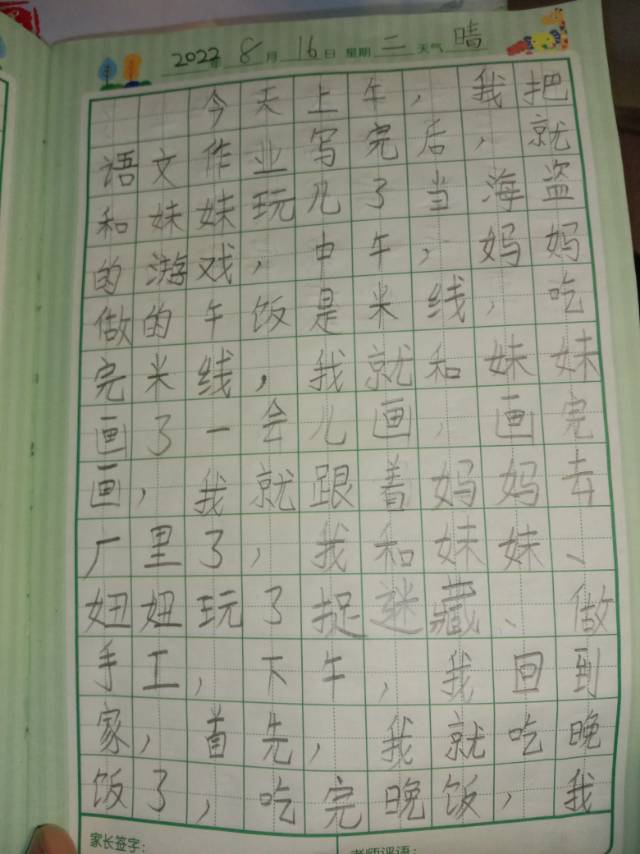 2022年8月16日 星期二 天气晴
今天上午，我把
语文作业写完后，就
和妹妹玩儿了当海盗
的游戏，中午，妈妈
做的午饭是米线，吃
完米线，我就和妹妹
画了一会儿画，画完
画，我就跟着妈妈去
厂里了，我和妹妹、
妞妞玩了捉迷藏、做
手工，下午，我回到
家，首先，我就吃晚
饭了，吃完晚饭，我
家长签字：
老师评语：